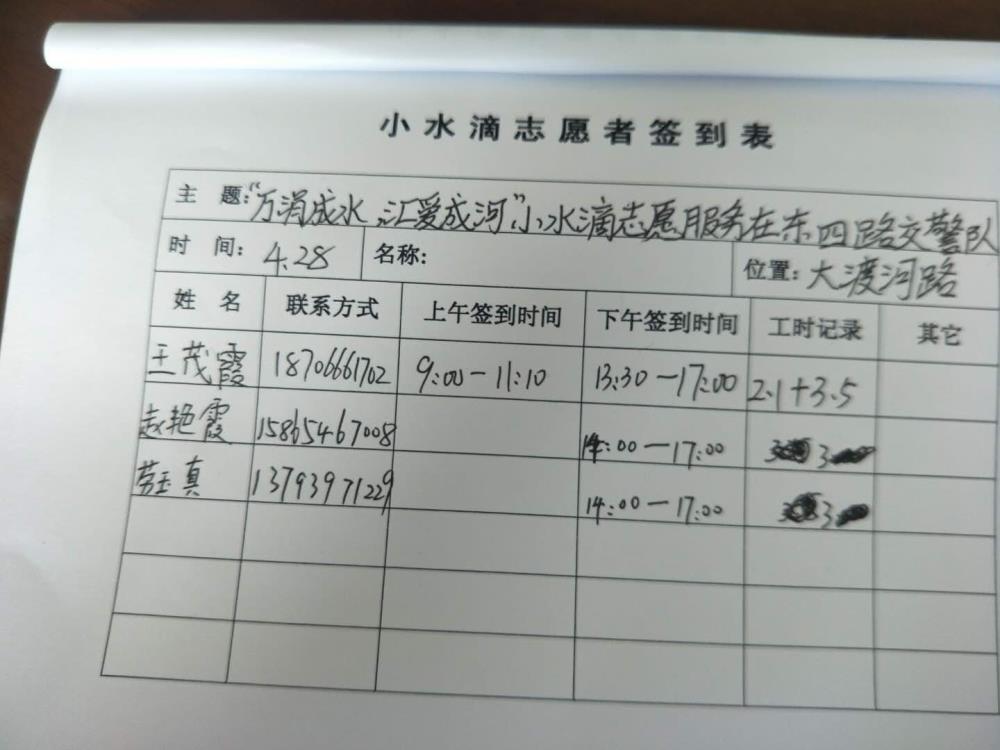 小水滴志愿者签到表
主 题:"万涓成水 汇爱成河"小水滴志愿服务在东四路交警队
时 间: 4.28 名称: 位置: 大渡河路
姓 名 联系方式 上午签到时间 下午签到时间 工时记录 其它
王茂霞 18706661702 9:00-11:10 13:30-17:00 2.1+3.5
赵艳霞 15865467008 14:00-17:00 3
劳玉真 13793971229 14:00-17:00 3